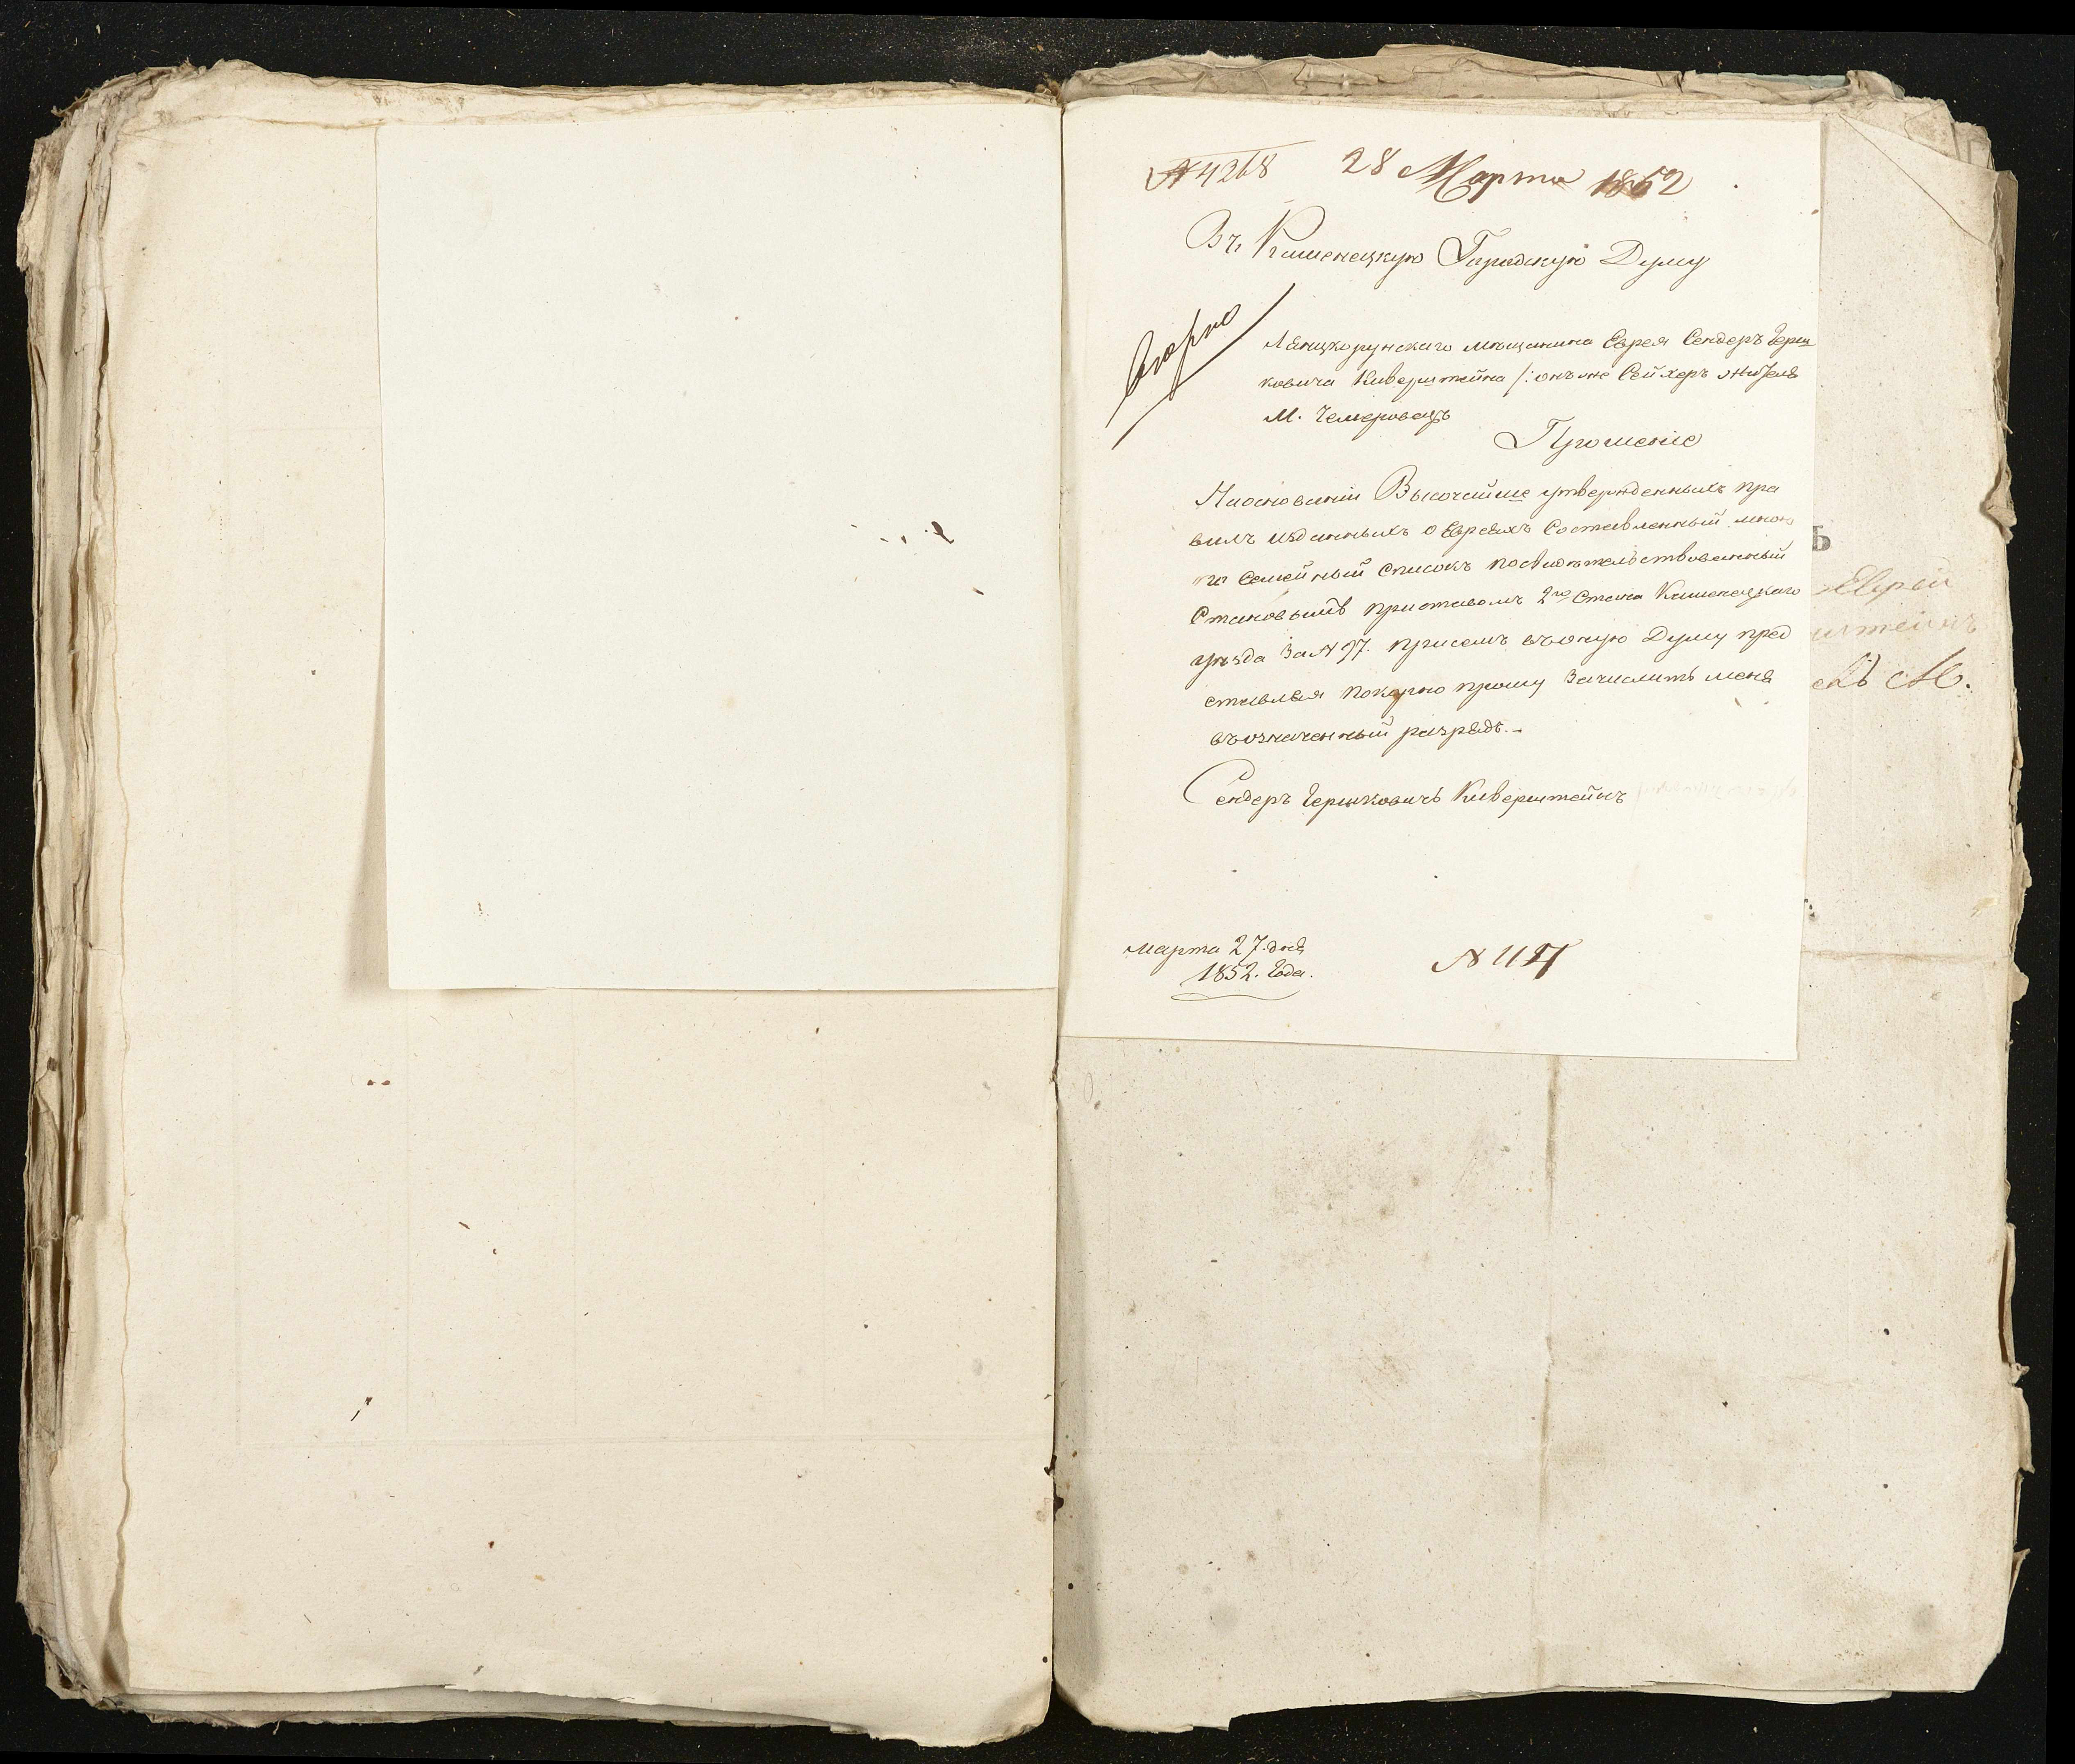 № 4268 28 Марта 1852
Въ Каменецкую Городскую Думу
Лянцкорунскаго мѣщанина Еврея Сендеръ Герш
ковича Киверштейна /: онъ же Сейхеръ жителя
М. Чемеровецъ
Прошеніе
На основаніи Высочайше утвержденныхъ пра
вилъ изданныхъ о Евреяхъ Составленный мною
Семейный Списокъ посвидѣтельствованный
Становымъ приставомъ 2го Стана Каменецкаго
уѣзда За № 97. присемъ въ оную Думу пред
ставляя покорно прошу Зачислить меня
въ означенный разрядъ.-
Сендеръ Гершковичъ Киверштейнъ
Марта 27. дня
1852. Года.
№
Б
Еврей
штейнъ
М.